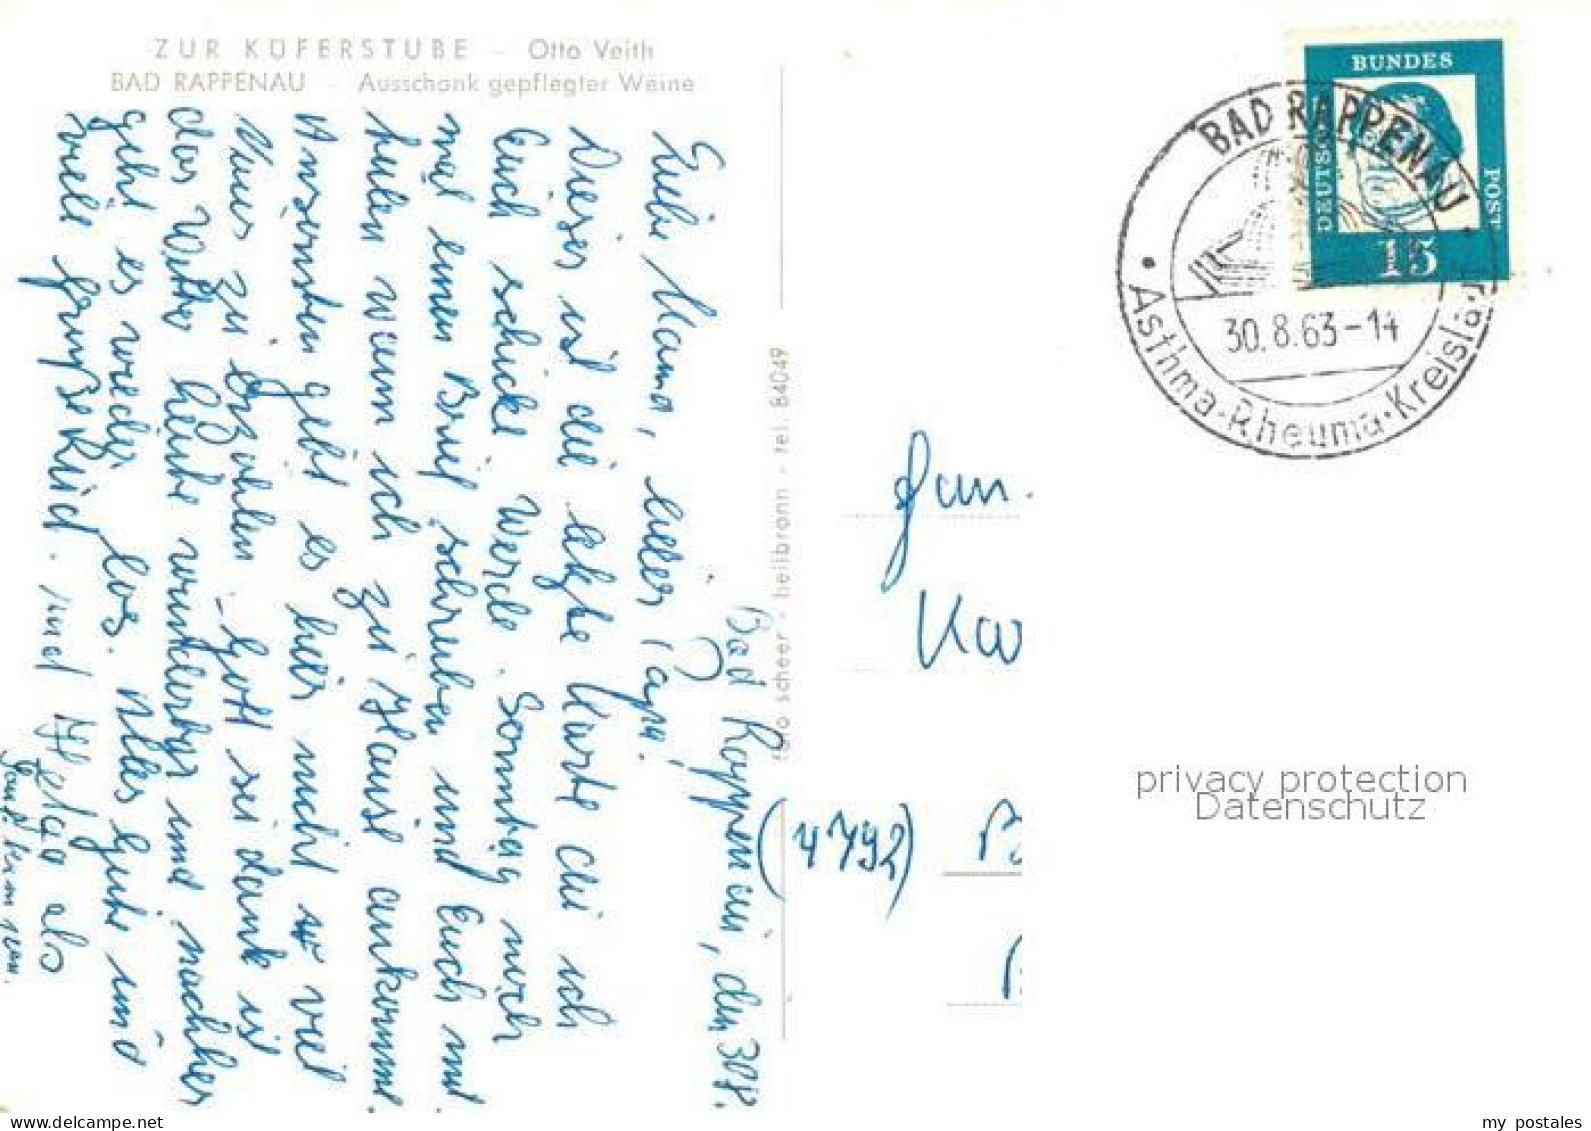 ZUR KÜFERSTUBE - Otto Veith
BAD RAPPENAU - Ausschank gepflegter Weine
Bad Rappenau, den 30.8.
Liebe Mama, lieber Papa!
Dieser ist die letzte Karte die ich
Euch schicke werde. Sonntag noch
mal einen Brief schreiben und Euch mit
teilen wann ich zu Hause ankomme.
Ansonsten gibt es hier nicht viel
Neues zu erzählen. Gott sei dank ist
das Wetter heute wunderbar und nachher
geht es wieder los. Alles Gute und
viele Grüße Kind. und Helga als
foto scheer · heilbronn · tel. 84049
BUNDES
POST
DEUTSCHE
15
BAD RAPPENAU
30.8.63-14
Asthma·Rheuma·Kreislauf
Fam.
(4792)
privacy protection
Datenschutz
my_postales
www.delcampe.net